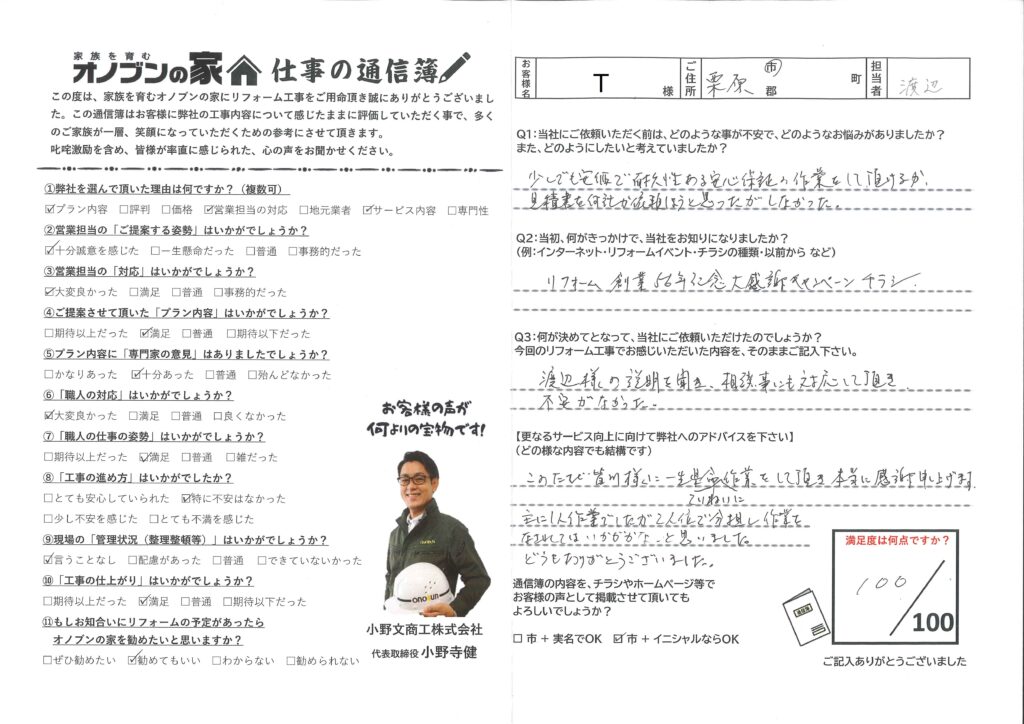 家族を育む
オノブンの家 仕事の通信簿
この度は、家族を育むオノブンの家にリフォーム工事をご用命頂き誠にありがとうございまし
た。この通信簿はお客様に弊社の工事内容について感じたままに評価していただく事で、多く
のご家族が一層、笑顔になっていただくための参考にさせて頂きます。
叱咤激励を含め、皆様が率直に感じられた、心の声をお聞かせください。
①弊社を選んで頂いた理由は何ですか？（複数可）
☑プラン内容 □評判 □価格 ☑営業担当の対応 □地元業者 ☑サービス内容 □専門性
②営業担当の「ご提案する姿勢」はいかがでしょうか？
☑十分誠意を感じた □一生懸命だった □普通 □事務的だった
③営業担当の「対応」はいかがでしょうか？
☑大変良かった □満足 □普通 □事務的だった
④ご提案させて頂いた「プラン内容」はいかがでしょうか？
□期待以上だった ☑満足 □普通 □期待以下だった
⑤プラン内容に「専門家の意見」はありましたでしょうか？
□かなりあった ☑十分あった □普通 □殆んどなかった
⑥「職人の対応」はいかがでしょうか？
☑大変良かった □満足 □普通 □良くなかった
⑦「職人の仕事の姿勢」はいかがでしょうか？
□期待以上だった ☑満足 □普通 □雑だった
⑧「工事の進め方」はいかがでしたか？
□とても安心していられた ☑特に不安はなかった
□少し不安を感じた □とても不満を感じた
⑨現場の「管理状況（整理整頓等）」はいかがでしょうか？
☑言うことなし □配慮があった □普通 □できていないかった
⑩「工事の仕上がり」はいかがでしょうか？
□期待以上だった ☑満足 □普通 □期待以下だった
⑪もしお知合いにリフォームの予定があったら
オノブンの家を勧めたいと思いますか？
□ぜひ勧めたい ☑勧めてもいい □わからない □勧められない
お客様の声が
何よりの宝物です！
onobun
小野文商工株式会社
代表取締役 小野寺健
お客様名 T 様 ご住所 栗原 市 郡 町 担当者 渡辺
Q1：当社にご依頼いただく前は、どのような事が不安で、どのようなお悩みがありましたか？
また、どのようにしたいと考えていましたか？
少しでも安価で耐久性ある安心保証の作業をして頂けるか、
見積書を何社か依頼しようと思ったがしなかった。
Q2：当初、何がきっかけで、当社をお知りになりましたか？
（例：インターネット・リフォームイベント・チラシの種類・以前から など）
リフォーム 創業56年記念大感謝キャンペーンチラシ.
Q3：何が決めてとなって、当社にご依頼いただけたのでしょうか？
今回のリフォーム工事でお感じいただいた内容を、そのままご記入下さい。
渡辺様の説明を聞き、相談事にも対応して頂き、
不安がなかった。
【更なるサービス向上に向けて弊社へのアドバイスを下さい】
（どの様な内容でも結構です）
このたび皆川様に一生懸命作業をして頂き本当に感謝申し上げます
ていねいに
主に1人作業でしたが2人位で分担し作業を
なされてはいかがかな、と思いました。
どうもありがとうございました。
通信簿の内容を、チラシやホームページ等で
お客様の声として掲載させて頂いても
よろしいでしょうか？
□ 市 + 実名でOK ☑ 市 + イニシャルならOK
通信簿
満足度は何点ですか？
100
/100
ご記入ありがとうございました